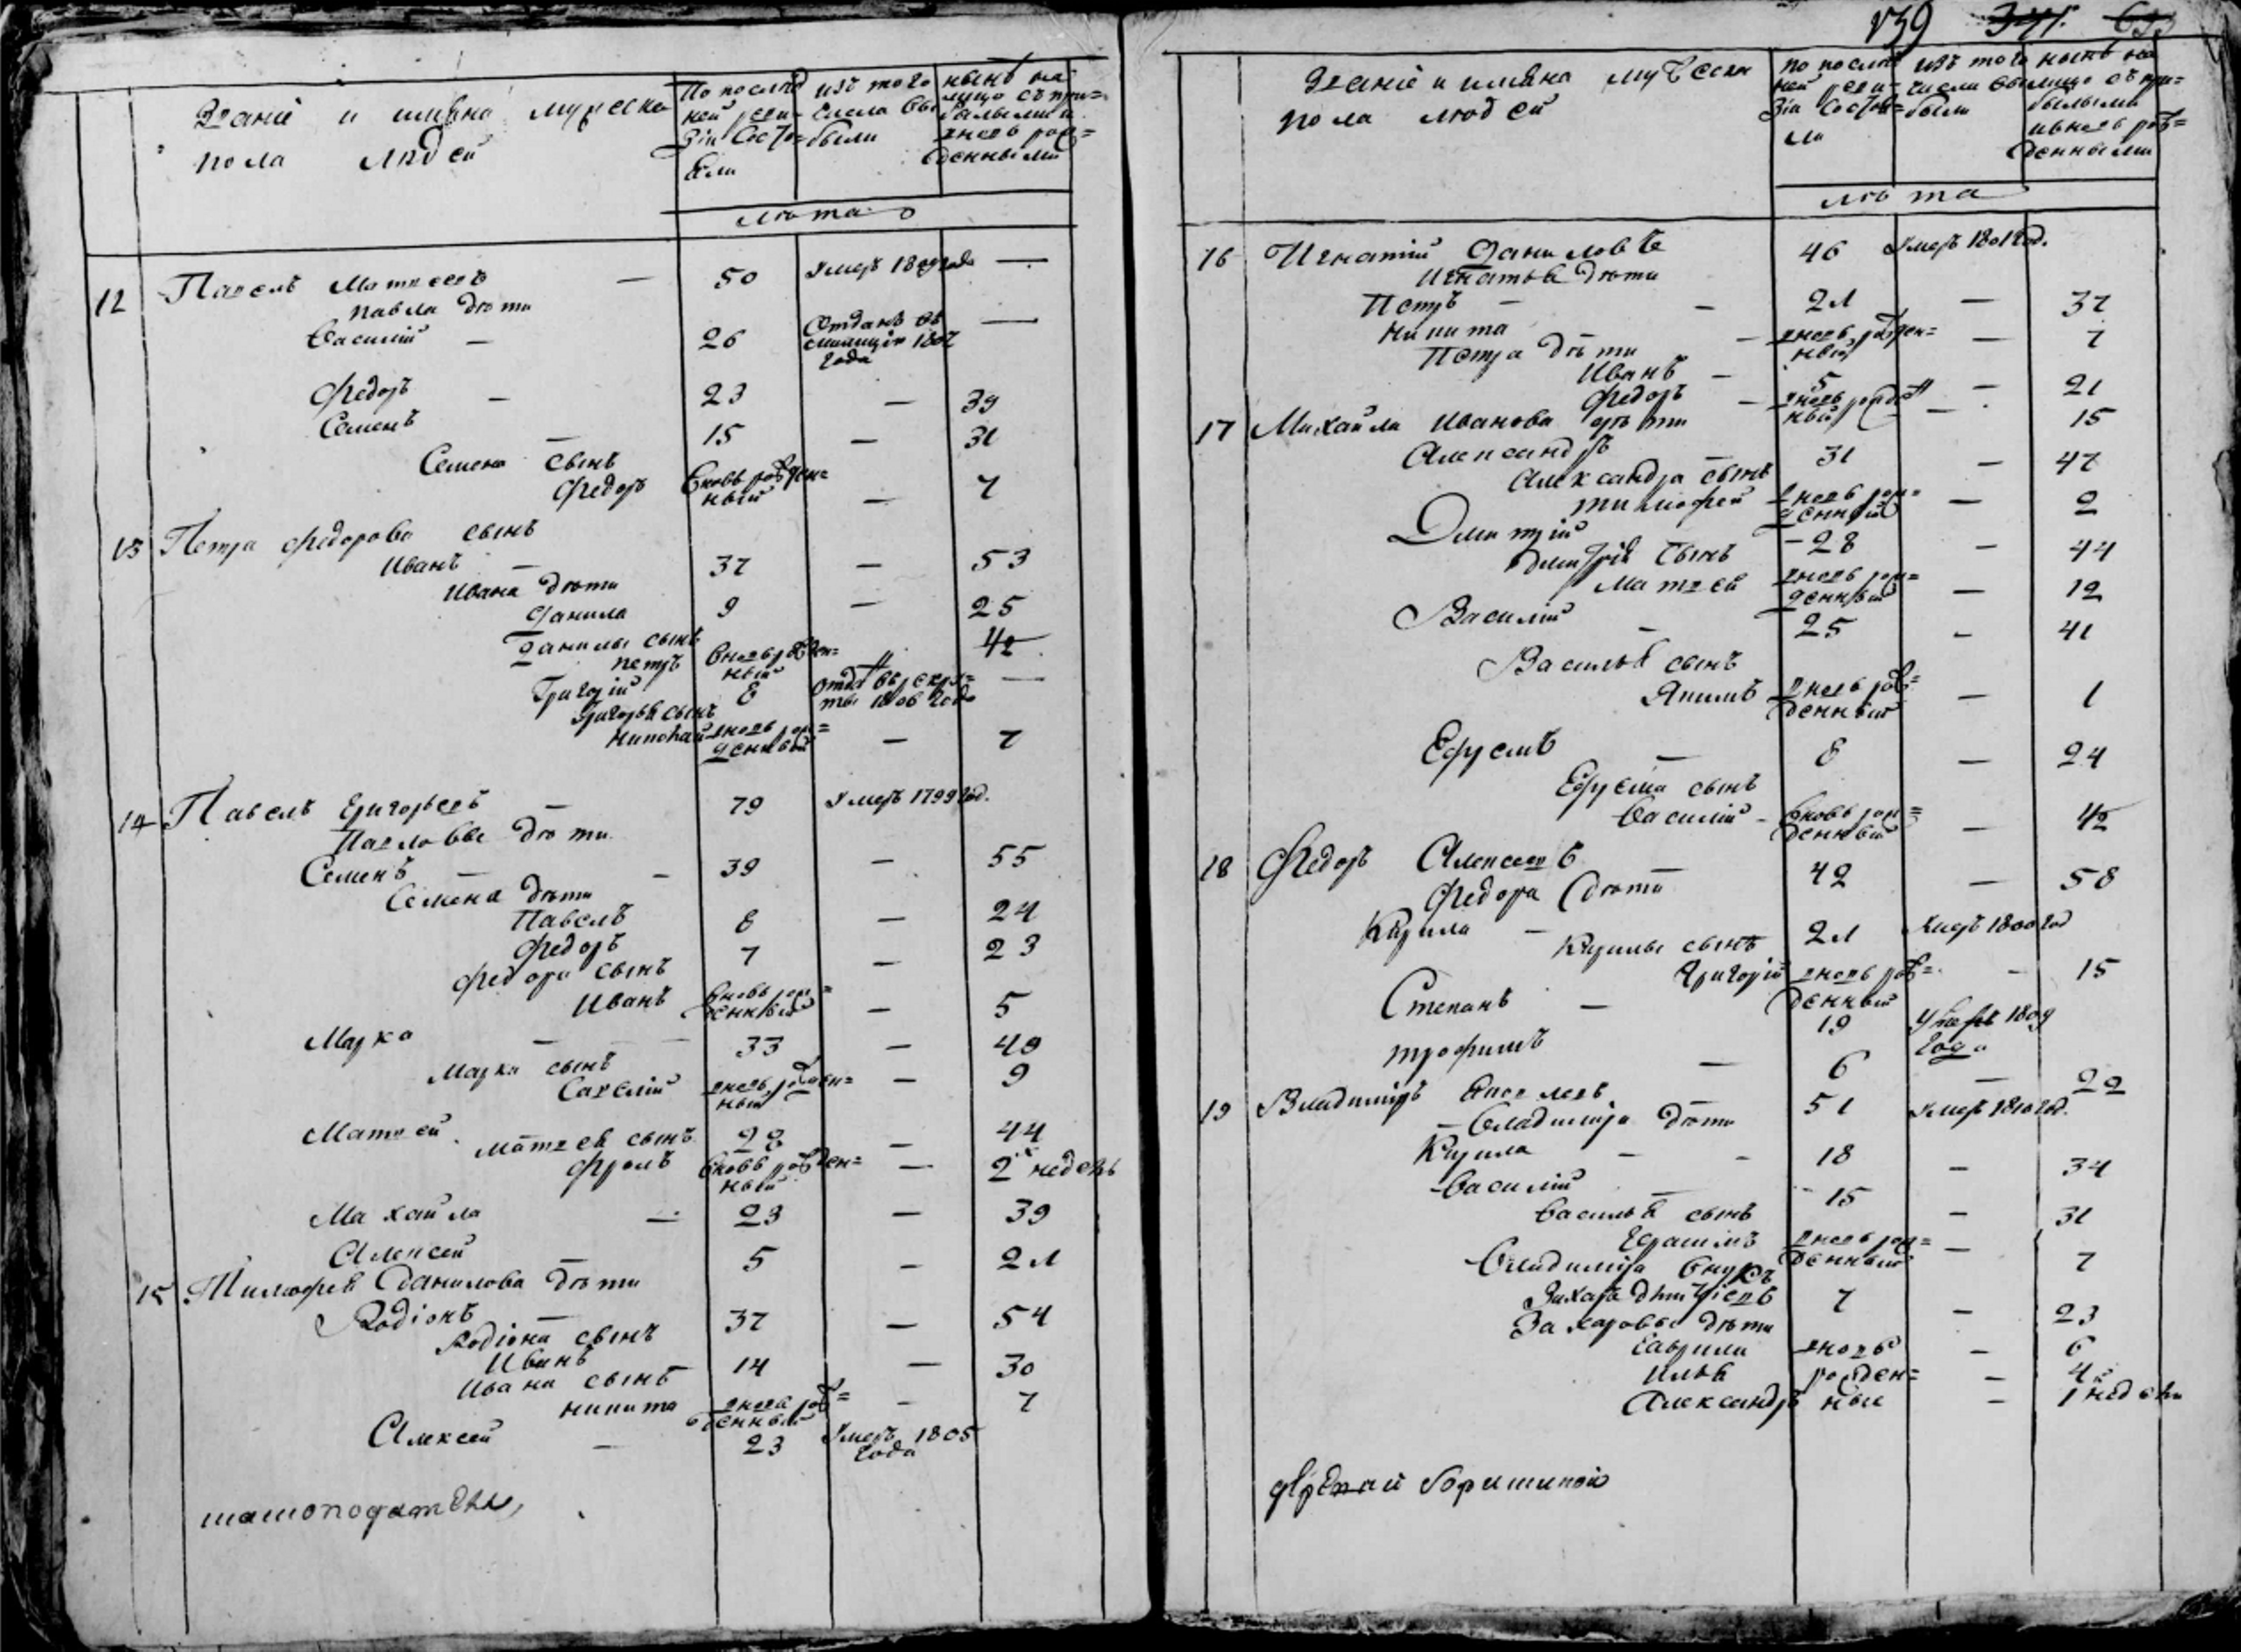 Званіе и имяна мужеска
пола людей
По послѣд ней реви= зіи Состо= яли
изъ того числа вы= были
нынѣ на лицо съ при= былыми и вновь рож= денными
лѣта
12 Павелъ Матвеевъ — 50 Умеръ 1809 года —
павла дѣти
Василій — 26 Отданъ въ милицію 1807 года —
Федоръ — 23 — 39
Семенъ — 15 — 31
Семена сынъ
Федоръ вновь рожден= ный — 7
13 Петра Федорова сынъ
Иванъ — 37 — 53
Ивана дѣти
Данила 9 — 25
Данилы сынъ
петръ вновь рожден= ный 4
Григорій 8 отда въ рекру= ты 1806 года —
Григорья сынъ
Николай вновь рож= денный — 7
14 Павелъ Григорьевъ — 79 Умеръ 1799 год.
Павловы дѣти
Семенъ — 39 — 55
Семена дѣти
Павелъ 8 — 24
Федоръ 7 — 23
Федора сынъ
Иванъ вновь рож= денный — 5
Марко — 33 — 49
Марки сынъ
Савелій вновь рожден= ный — 9
Матвей 28 — 44
Матвея сынъ
Фролъ вновь рожден= ный — 2 недель
Михайла — 23 — 39
Алексей — 5 — 21
15 Тимофея Данилова дѣти
Родіонъ — 37 — 54
Родіона сынъ
Иванъ 14 — 30
Ивана сынъ
никита вновь рож= денный — 7
Алексей — 23 Умеръ 1805 года
139 341.
Званіе и имяна мужеска
пола людей
по послѣд ней реви= зіи Состоя= ли
изъ того числа вы= были
нынѣ на лицо съ при= былыми и вновь рож= денными
лѣта
16 Игнатій Даниловъ 46 Умеръ 1801 год.
Игнатья дѣти
Петръ — 21 — 37
никита — вновь рожден= ный — 7
Петра дѣти
Иванъ — 5 — 21
Федоръ — вновь рожден ный — 15
17 Михайла Иванова дѣти
Александръ — 31 — 47
Александра сынъ
тимофей вновь рож= денный — 2
Дмитрій — 28 — 44
Дмитрія сынъ
Матвей вновь рож= денный — 12
Василій — 25 — 41
Василья сынъ
Якимъ вновь рож= денный — 1
Ефремъ — 8 — 24
Ефрема сынъ
василій вновь рож= денный — 4
18 Федоръ Алексеевъ — 42 — 58
Федора дѣти
Кирила — 21 Умеръ 1800 год
Кирилы сынъ
Григорій вновь рож= денный — 15
Степанъ — 19 Умеръ 1809 года
трофимъ — 6 — 22
19 Владимиръ — 51 Умеръ 1810 год.
Владимира дѣти
Кирила — 18 — 34
василій — 15 — 31
василья сынъ
Герасимъ вновь рож= денный — 7
Владимира внукъ
Захаръ Дмитріевъ 7 — 23
Захаровы дѣти
Гаврила вновь — 6
Илья рожден= — 4
Александръ ные — 1 недели